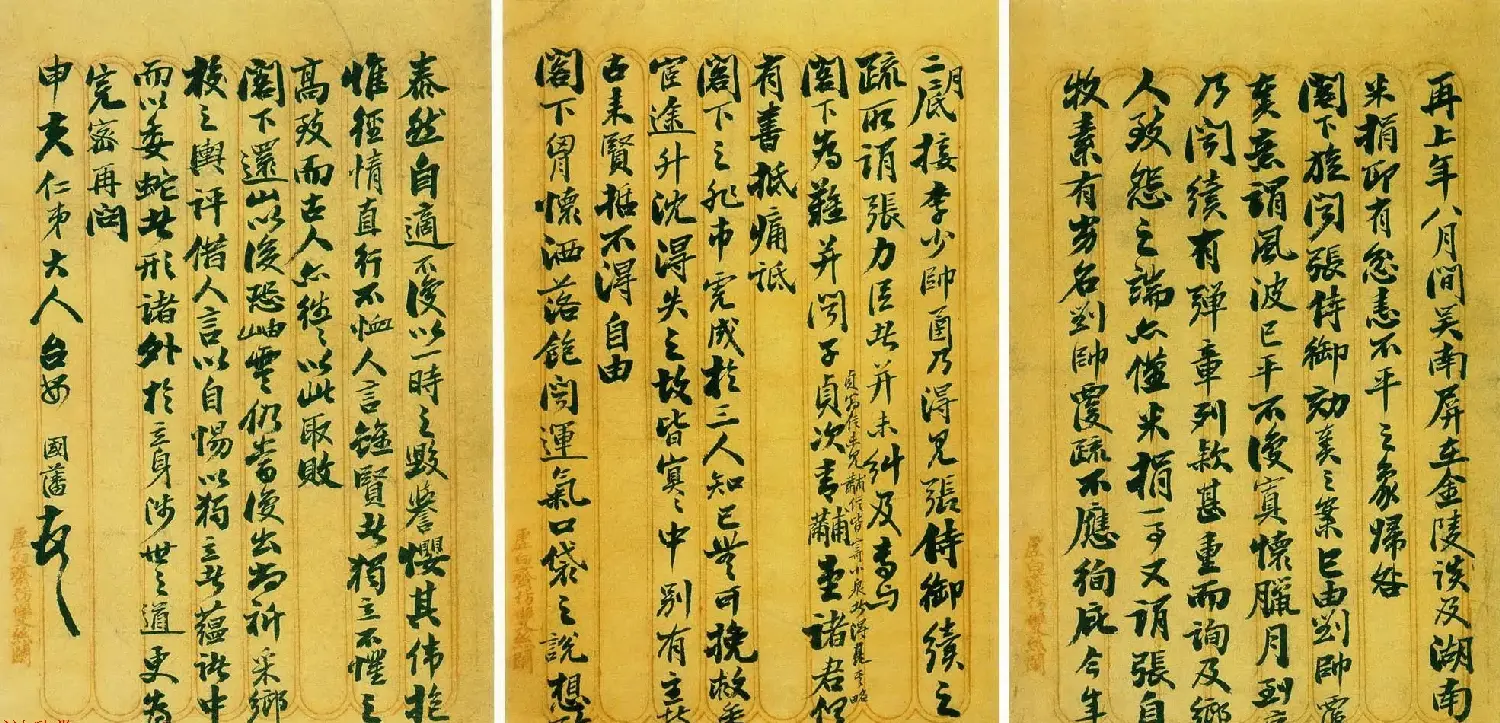 再上年八月間吴南屏在金陵談及湖南
米捐即有忿恚不平之象歸咎
閣下旋聞張侍御劾
之案已由劉帥
意謂風波已平不復寘懷臘月到
乃聞續有彈章列款甚重而詢及鄉
人致怨之端亦僅米捐一事又謂張自
牧素有劣名劉帥覆疏不應徇庇今年
二月底接李少帥函乃得見張侍御續之
疏所謂張力臣者并未糾及專与
閣下為難并聞子貞次青黼堂諸君但
有善抵痛詆
閣下之非市虎成於三人知己無可挽救
宦途升沈得失之故皆冥冥中别有主
古来賢哲不得自由
閣下胃懷洒落飽聞運氣口袋之說想
泰然自適不復以一時之毁譽攖其偉抱
惟徑情直行不恤人言雖賢者獨立不懼之
高致而古人亦往往以此取敗
閣下還山以後恐岫雲仍當復出尚祈采鄉
校之輿評借人言以自惕以獨立者蘊諸中
而以委蛇者形諸外於立身涉世之道更為
完密再問
申夫仁弟大人台安 國藩頓